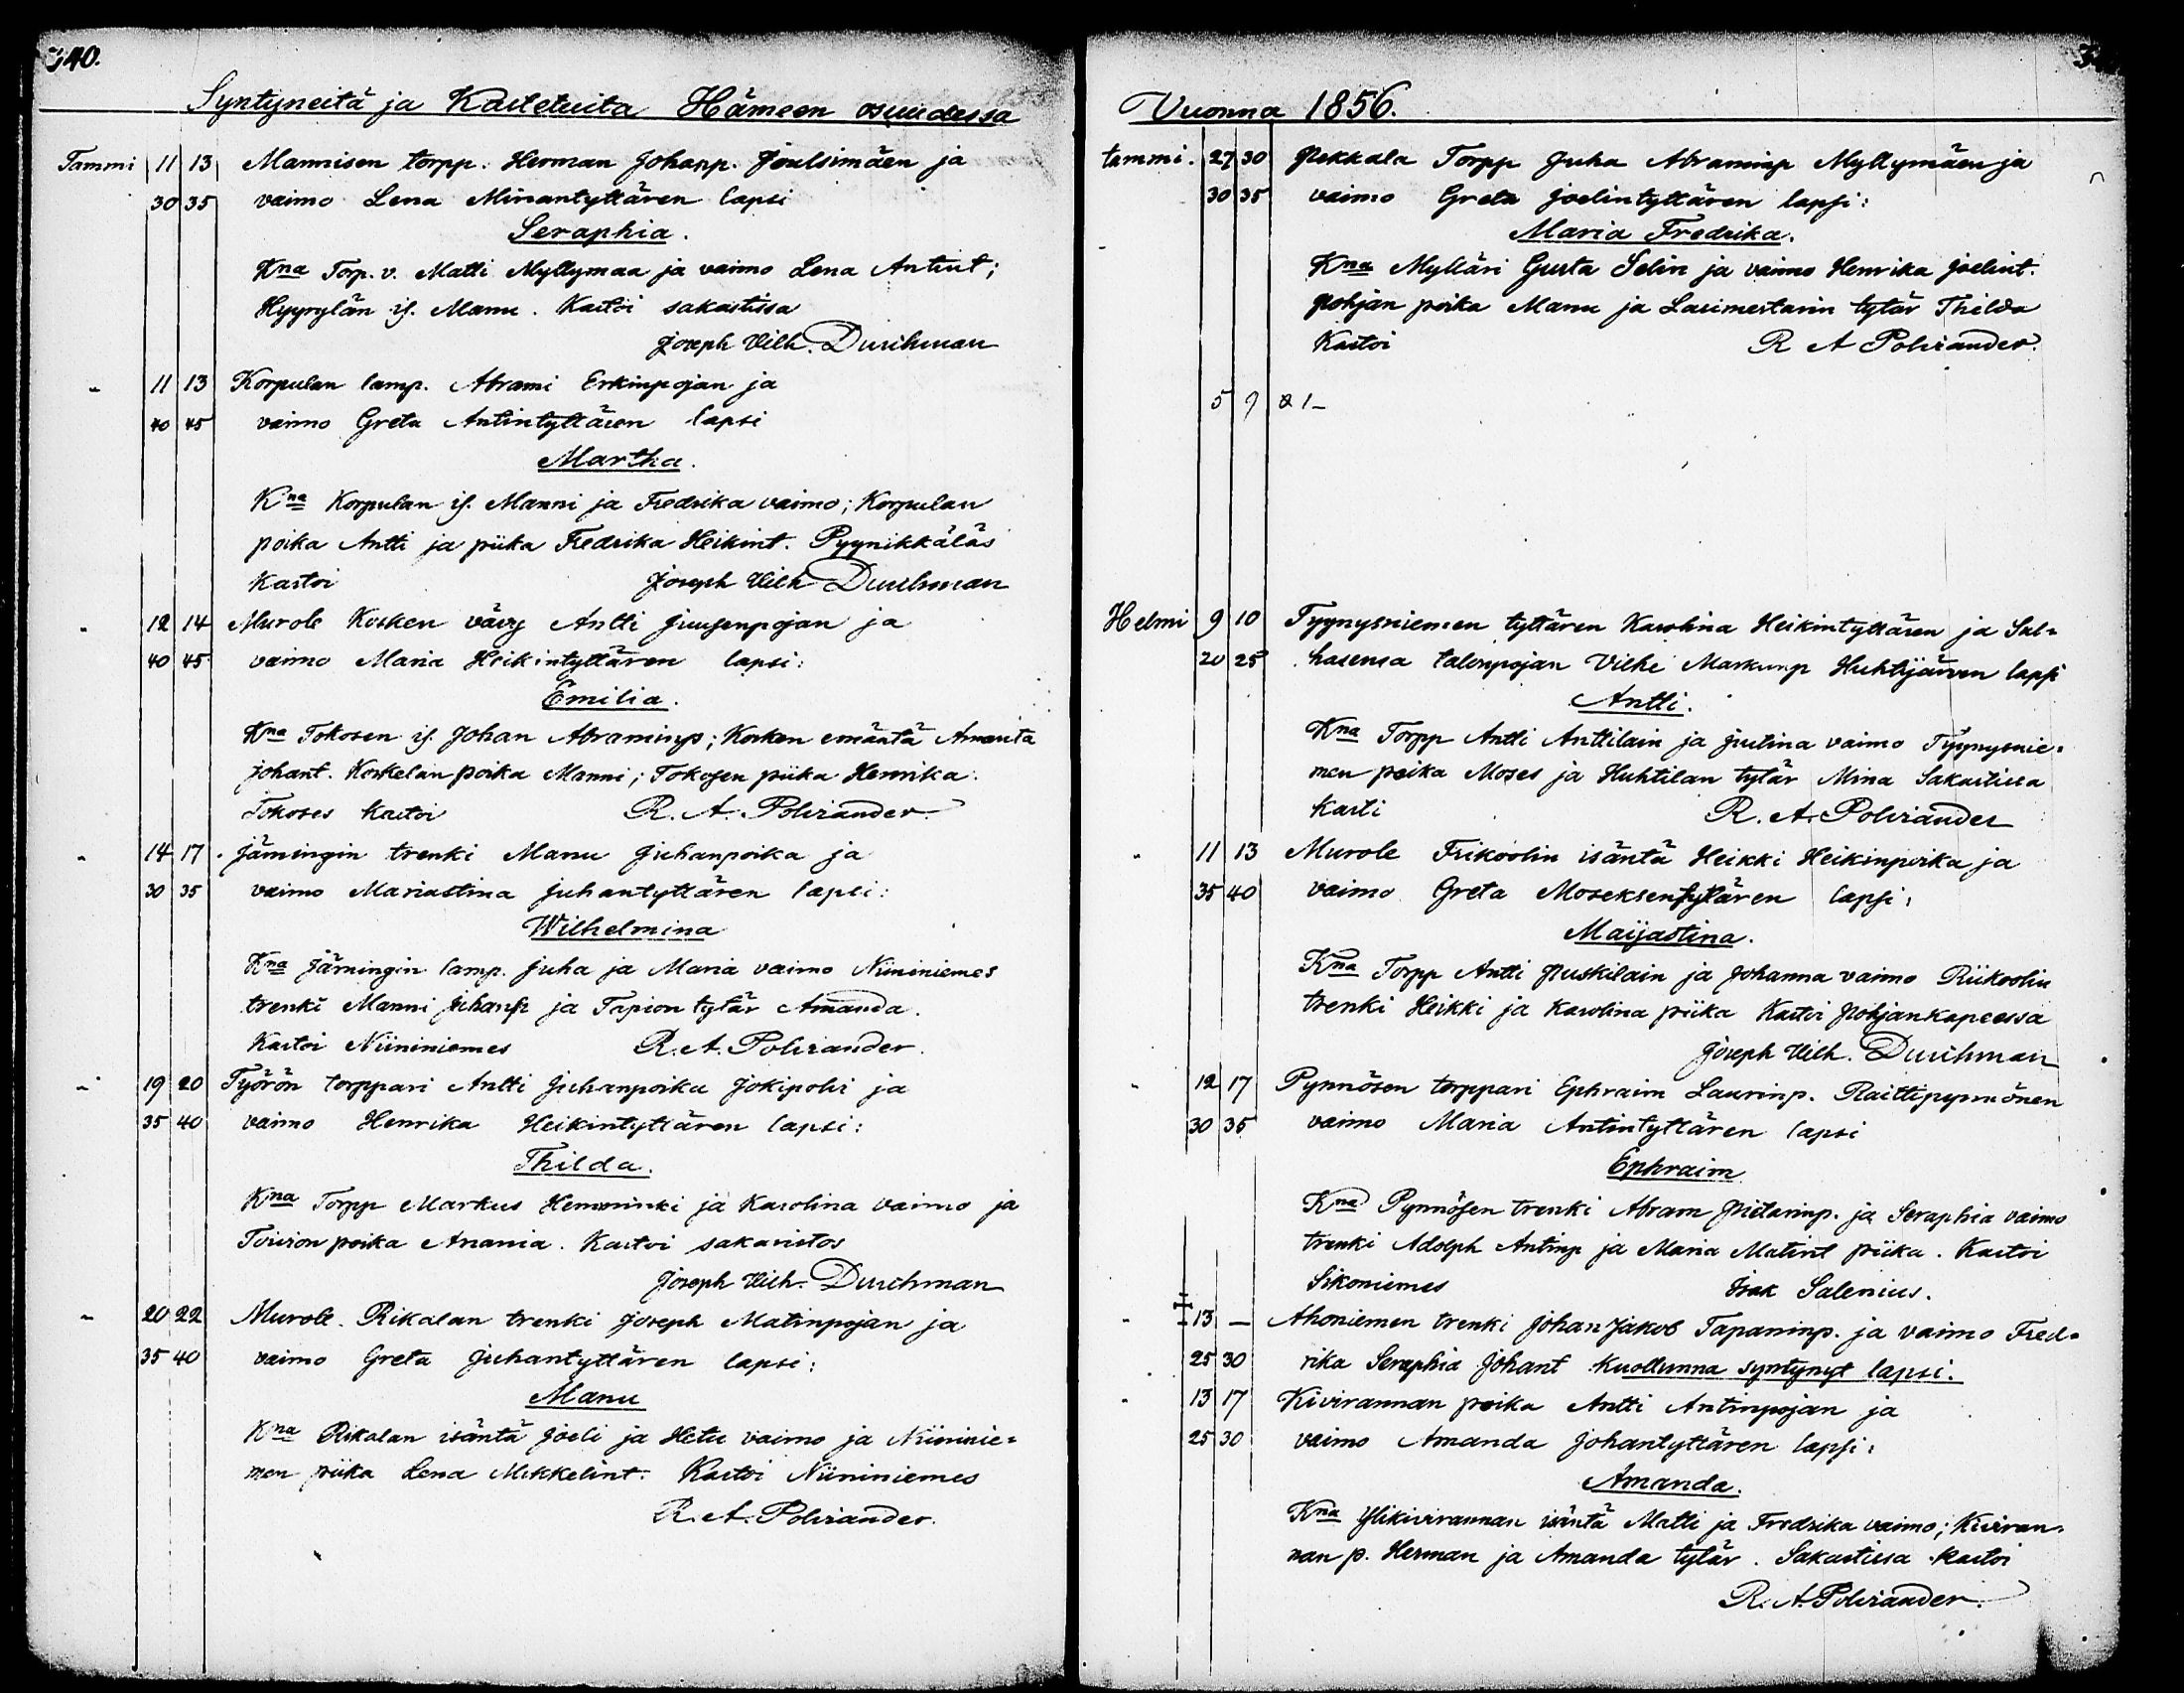 340.
Syntyneitä ja Kastetuita Hämeen osuudessa
Tammi 11 13 Mannisen torpp. Herman Johanp. Joulsimäen ja
30 35 vaimo Lena Minantyttären lapsi
Seraphia.
Kna Torp. v. Matti Myllymaa ja vaimo Lena Antint;
Hyyrylän is. Manu. Kastoi sakastissa
Joseph Vilh. Durchman
" 11 13 Korpulan lamp. Abrami Erkinpojan ja
40 45 vaimo Greta Antintyttären lapsi
Martha.
Kna Korpulan is. Manni ja Fredrika vaimo; Korpulan
poika Antti ja piika Fredrika Heikint. Pyynikkäläs
Kastoi Joseph Vilh Durchman
" 12 14 Murole Kosken vävy Antti Juusenpojan ja
40 45 vaimo Maria Heikintyttären lapsi:
Emilia.
Kna Tokosen is. Johan Abraminp; Kosken emäntä Amanta
Johant. Koskelan poika Manni; Tokosen piika Henrika.
Tokoses Kastoi R. A. Polviander
" 14 17 Jämingin trenki Manu Juhanpoika ja
30 35 vaimo Mariastina Juhantyttären lapsi:
Wilhelmina
Kna Jämingin lamp. Juha ja Maria vaimo Niininiemes
trenki Manni Juhanp ja Tapion tytär Amanda.
Kastoi Niininiemes R. A. Polviander.
" 19 20 Työrön torppari Antti Juhanpoika Jokipolvi ja
35 40 vaimo Henrika Heikintyttären lapsi:
Thilda.
Kna Torpp Markus Hemminki ja Karolina vaimo ja
Toivion poika Anania. Kastoi sakaristos
Joseph Vilh. Durchman
" 20 22 Murole. Rikalan trenki Joseph Matinpojan ja
35 40 vaimo Greta Juhantyttären lapsi:
Manu
Kna Rikalan isäntä Joeli ja Hetu vaimo ja Niininie=
men piika Lena Mikkelint. Kastoi Niininiemes
R. A. Polviander.
Vuonna 1856.
tammi. 27 30 Pekkala Torpp Juha Abraminp Myllymäen ja
30 35 vaimo Greta Joelintyttären lapsi:
Maria Fredrika.
Kna Mylläri Gusta Selin ja vaimo Henrika Joelint.
Pohjan poika Manu ja Lasimestarin tytär Thilda
Kastoi R A Polviander.
5 9
Helmi 9 10 Tyynysniemen tyttären Karolina Heikintyttären ja Sul=
20 25 hasensa talonpojan Vilhe Markunp Huhtijärven lapsi
Antti.
Kna Torpp Antti Anttilain ja Justina vaimo Tyynysnie=
men poika Moses ja Huhtilan tytär Mina Sakastissa
Kasti R. A. Polviander
" 11 13 Murole Frikoolin isäntä Heikki Heikinpoika ja
35 40 vaimo Greta Moseksentyttären lapsi:
Maijastina.
Kna Torpp Antti Puskilain ja Johanna vaimo Riikoolin
trenki Heikki ja Karolina piika Kastoi Pohjankapeessa
Joseph Vilh. Durchman
" 12 17 Pynnösen torppari Ephraim Laurinp. Raittipynnönen
30 35 vaimo Maria Antintyttären lapsi
Ephraim
Kna Pynnösen trenki Abram Pietarinp. ja Seraphia vaimo
trenki Adolph Antinp ja Maria Matint piika. Kastoi
Sikoniemes Isak Salenius.
" ‡ 13 — Ahoniemen trenki Johan Jakob Tapaninp. ja vaimo Fred=
25 30 rika Seraphia Johant Kuollunna syntynyt lapsi.
" 13 17 Kivirannan poika Antti Antinpojan ja
25 30 vaimo Amanda Johantyttären lapsi:
Amanda.
Kna Ylikivirannan isäntä Matti ja Fredrika vaimo; Kiviran=
nan p. Herman ja Amanda tytär. Sakastissa kastoi
R. A. Polviander.